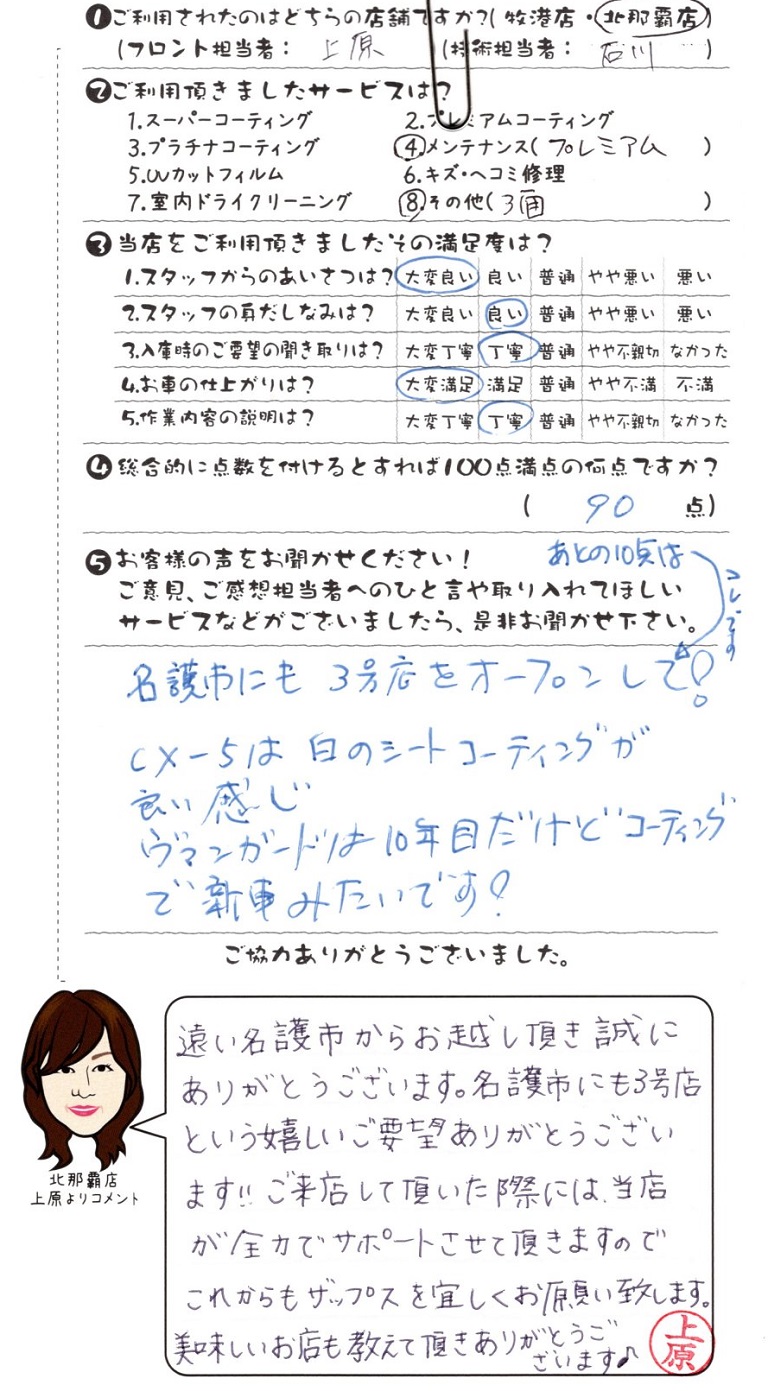 ❶ご利用されたのはどちらの店舗ですか?(牧港店・北那覇店)
(フロント担当者: 上原 (技術担当者: 石川 )
❷ご利用頂きましたサービスは?
1.スーパーコーティング 2.プレミアムコーティング
3.プラチナコーティング 4.メンテナンス(プレミアム )
5.UVカットフィルム 6.キズ・ヘコミ修理
7.室内ドライクリーニング 8.その他(3回 )
❸当店をご利用頂きましたその満足度は?
1.スタッフからのあいさつは? 大変良い 良い 普通 やや悪い 悪い
2.スタッフの身だしなみは? 大変良い 良い 普通 やや悪い 悪い
3.入庫時のご要望の聞き取りは? 大変丁寧 丁寧 普通 やや不親切 なかった
4.お車の仕上がりは? 大変満足 満足 普通 やや不満 不満
5.作業内容の説明は? 大変丁寧 丁寧 普通 やや不親切 なかった
❹総合的に点数を付けるとすれば100点満点の何点ですか?
( 90 点)
❺お客様の声をお聞かせください!
あとの10点は
コレです
ご意見、ご感想担当者へのひと言や取り入れてほしい
サービスなどがございましたら、是非お聞かせ下さい。
名護市にも 3号店をオープンして!
CX-5は 白のシートコーティングが
良い感じ
ヴァンガードは10年目だけどコーティング
で新車みたいです!
ご協力ありがとうございました。
遠い名護市からお越し頂き誠に
ありがとうございます。名護市にも3号店
という嬉しいご要望ありがとうござい
ます!!ご来店して頂いた際には、当店
が全力でサポートさせて頂きますので
これからもザップスを宜しくお願い致します。
美味しいお店も教えて頂きありがとうご
ざいます♪
上原
北那覇店
上原よりコメント